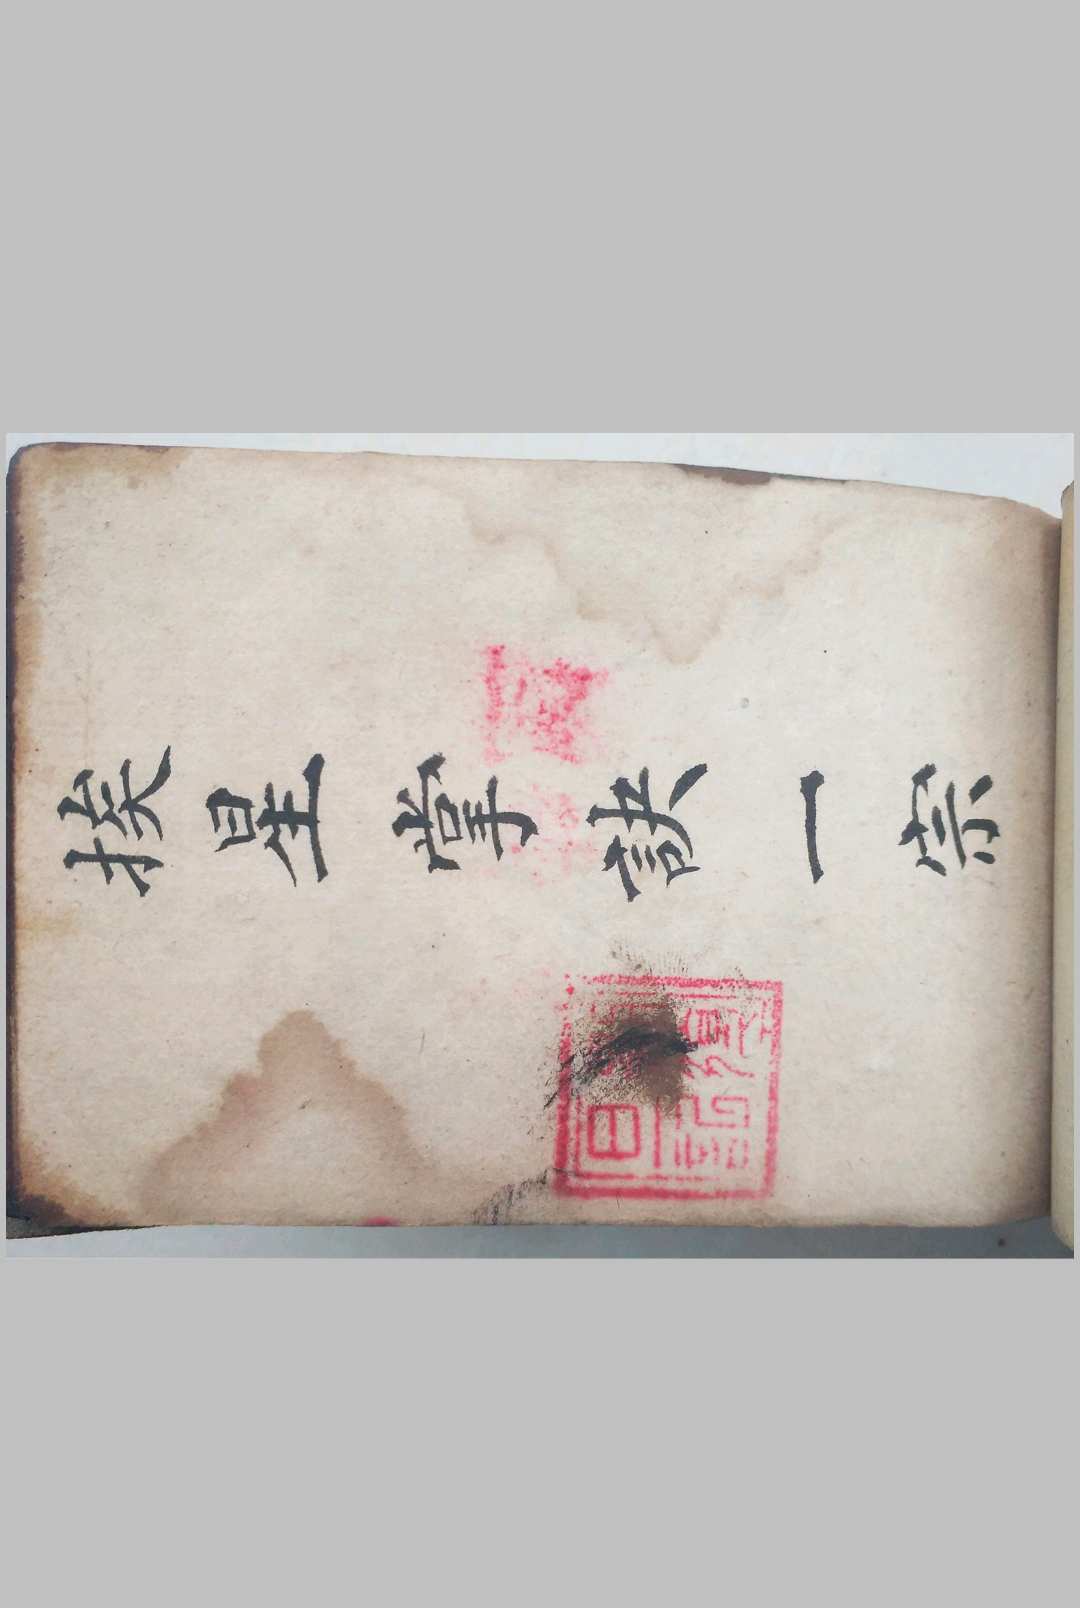 挨星掌訣一宗